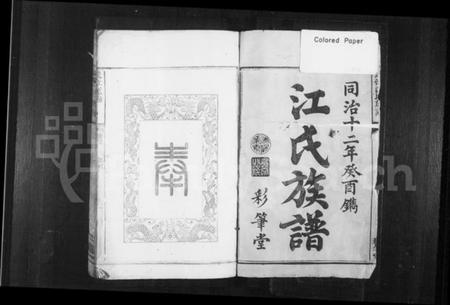 Colored Paper
同治十二年癸酉鐫
江氏族譜
彩筆堂
奉